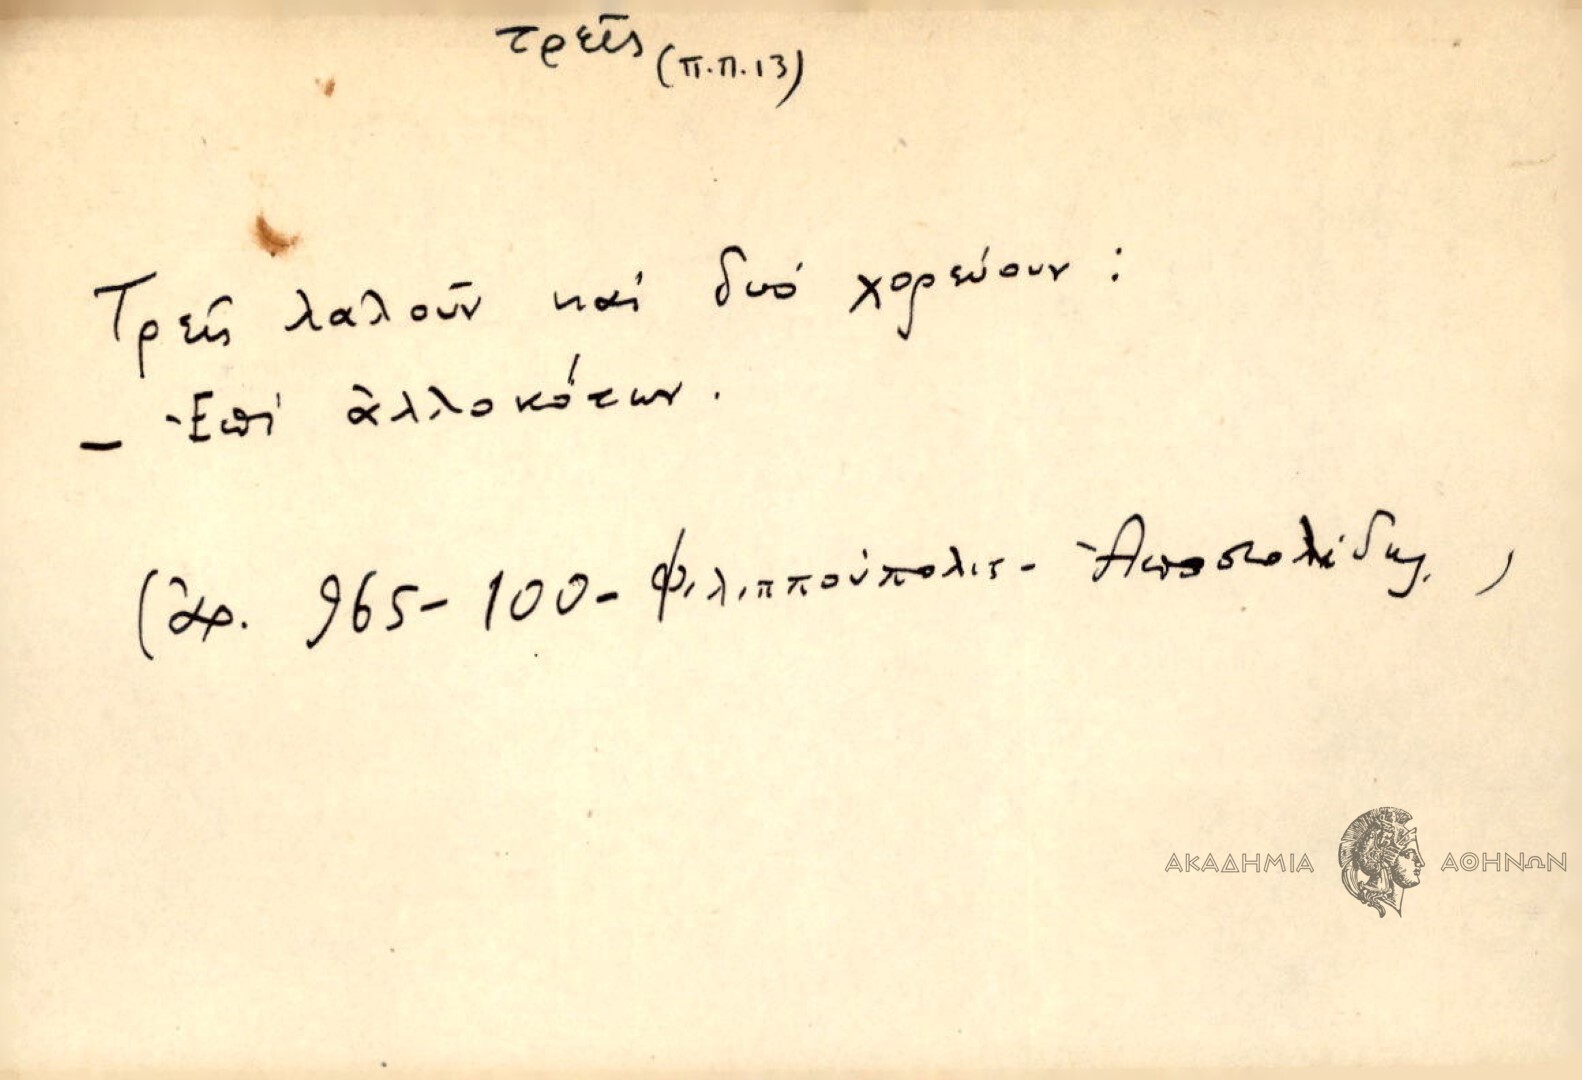 τρεῖς (π.π.13)
Τρεῖς λαλοῦν καί δυό χορεύουν :
– Ἐπί ἀλλοκότων.
(ἀρ. 965-100- Φιλιππούπολις- Ἀποστολίδης,)
ΑΚΑΔΗΜΙΑ ΑΘΗΝΩΝ